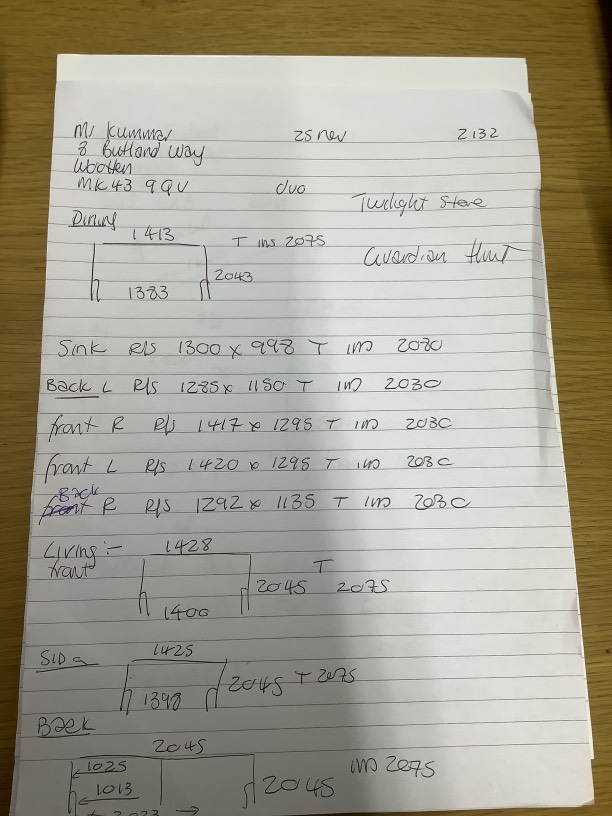 Mr Kummar 25 nov 2132
8 Butland Way
Wootten
MK43 9QV duo Twilight Stere
Dining
1413 T ins 2075 Guardian
2043
1383
Sink R/S 1300 x 998 T in 2080
Back L R/S 1285 x 1150 T in 2030
front R R/S 1417 x 1295 T in 2030
front L R/S 1420 x 1295 T in 2030
Back
front R R/S 1292 x 1135 T in 2030
Living :- 1428
front T
2045 2075
1400
SIDe 1425
2045 T 2075
1398
Back
2045
1025 in 2075
1013 2045